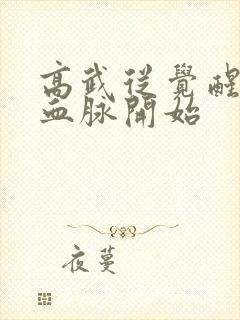 高武從覺醒
血脈開始
夜蔓